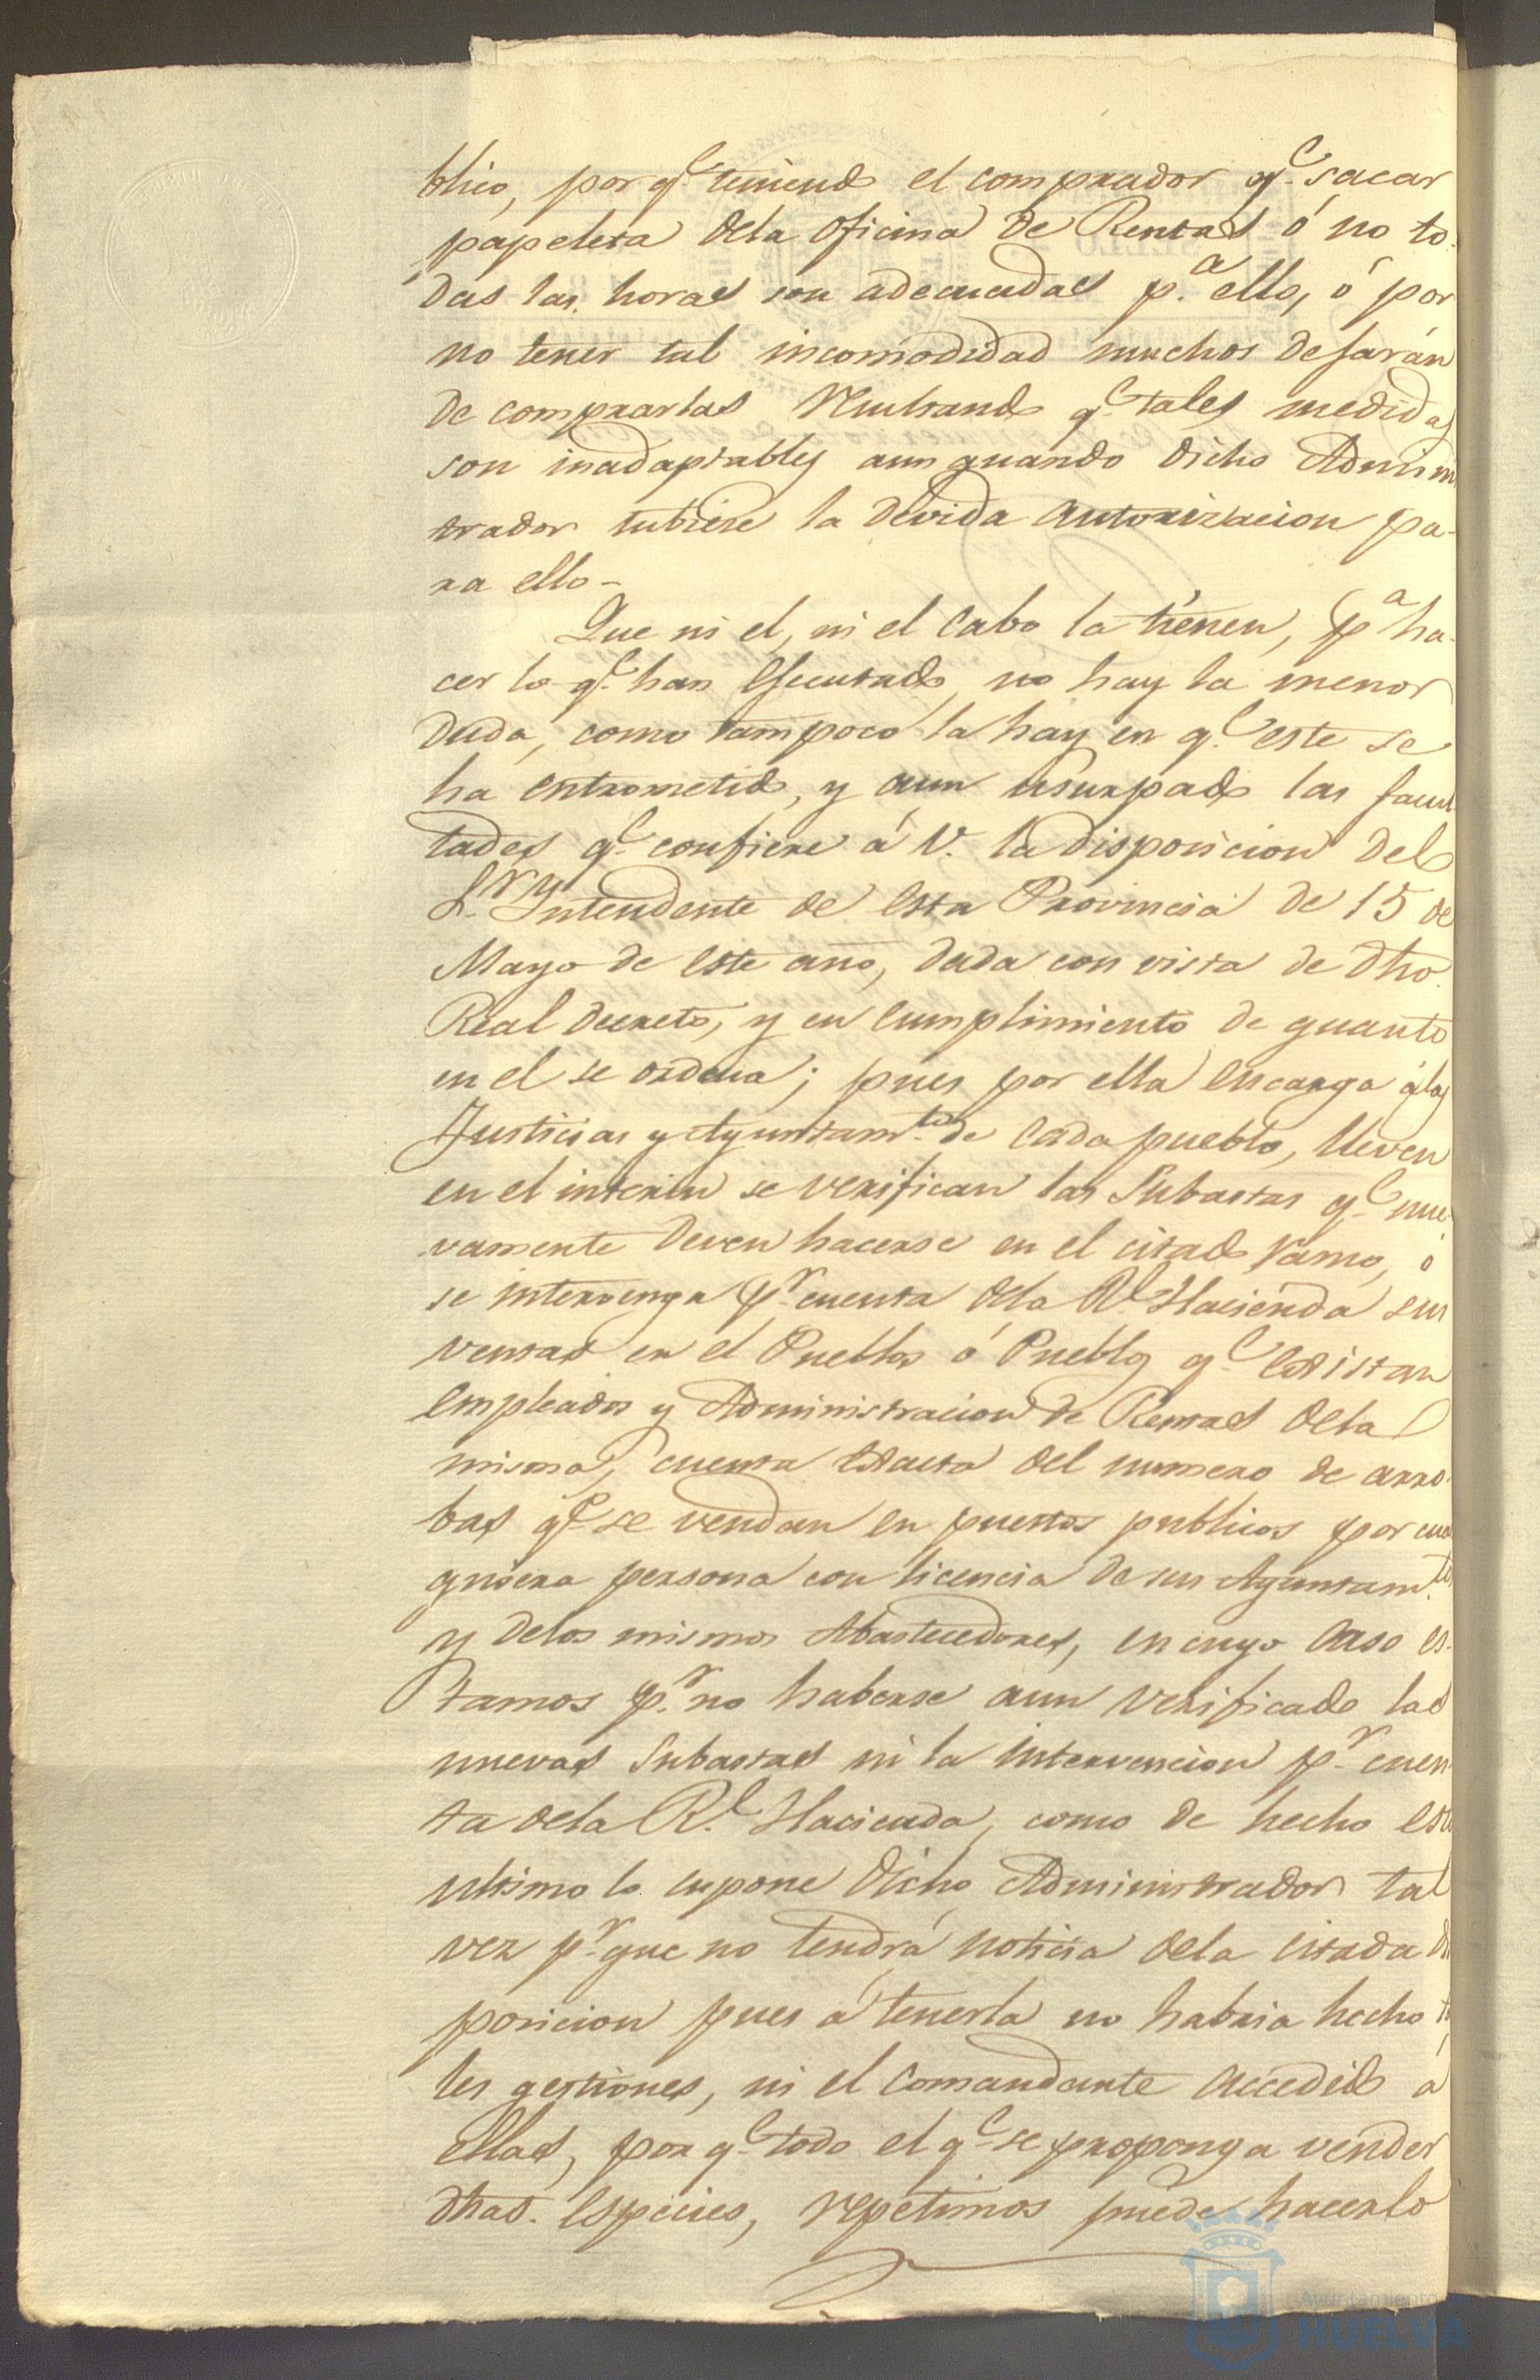 blico, por q.e teniendo el comprador q.e sacar
papeleta dela oficina de Rentas ó no to-
das las horas son adecuadas p.a ello, ó por
no tener tal incomodidad muchos dejarán
de comprarlas resultando q.e tales medidas
son inadaptables aun quando dicho Adminis
trador tubiese la devida autorizacion pa-
ra ello-
Que ni el, ni el Cabo la tienen, p.a ha-
cer lo q.e han ejecutado, no hay la menor
duda, como tampoco la hay en q.e este se
ha entrometido, y aun usurpado las facul
tades q.e confiere á V. la disposicion del
S.r Yntendente de esta Provincia de 15 de
Mayo de este año, dada con vista de dho.
Real decreto, y en cumplimiento de quanto
en el se ordena; pues por ella encarga á las
Justicias y Ayuntam.tos de cada pueblo, lleven
en el interin se verifican las Subastas q.e nue-
vamente deven hacerse en el citado ramo, ó
se intervenga p.r cuenta dela R.l Hacienda sus
ventas en el Pueblo ó Pueblos q.e existan
empleados y Administracion de Rentas dela
misma, cuenta exacta del numero de arro-
bas q.e se vendan en puestos publicos por cual
quiera persona con licencia de sus Ayuntam.tos
y delos mismos Abastecedores, en cuyo caso es-
tamos p.r no haberse aun verificado las
nuevas Subastas ni la intervencion p.r cuen-
ta dela R.l Hacienda, como de hecho este
ultimo lo supone dicho Administrador tal
vez p.r que no tendrá noticia dela citada dis
posicion pues á tenerla no habria hecho ta
les gestiones, ni el Comandante accedido á
ellas, por q.e todo el q.e se proponga vender
dhas. especies, repetimos puede hacerlo
Ayuntamiento
HUELVA